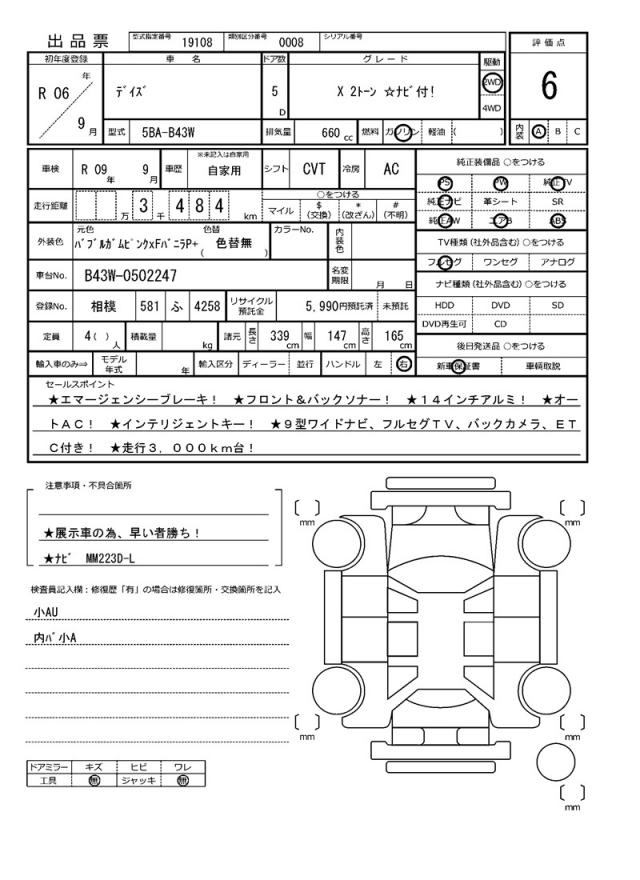 出品票 型式指定番号 19108 類別区分番号 0008 シリアル番号
評価点
6
内装 A B C
初年度登録 車名 ドア数 グレード 駆動
R 06 年 9 月 デイズ 5 D X 2トーン ☆ナビ付! 2WD 4WD
型式 5BA-B43W 排気量 660 cc 燃料 ガソリン 軽油 ( )
車検 R 09 年 9 月 車歴 ※未記入は自家用 自家用 シフト CVT 冷房 AC
走行距離 万 3 千 4 8 4 km
○をつける
マイル $ (交換) * (改ざん) # (不明)
外装色 元色 バブルガムピンクxFバニラP+ 色替 ( 色替無 ) カラーNo. 内装色
車台No. B43W-0502247 名変期限 月 日
登録No. 相模 581 ふ 4258 リサイクル預託金 5,990円預託済 未預託
定員 4( ) 人 積載量 kg 諸元 長さ 339 cm 幅 147 cm 高さ 165 cm
輸入車のみ⇒ モデル年式 年 輸入区分 ディーラー 並行 ハンドル 左 右
純正装備品 ○をつける
PS PW 純正TV
純正ナビ 革シート SR
純正AW エアB ABS
TV種類 (社外品含む) ○をつける
フルセグ ワンセグ アナログ
ナビ種類 (社外品含む) ○をつける
HDD DVD SD
DVD再生可 CD
後日発送品 ○をつける
新車保証書 車輌取説
セールスポイント
★エマージェンシーブレーキ! ★フロント&バックソナー! ★14インチアルミ! ★オー
トAC! ★インテリジェントキー! ★9型ワイドナビ、フルセグTV、バックカメラ、ET
C付き! ★走行3,000km台!
注意事項・不具合箇所
★展示車の為、早い者勝ち!
★ナビ MM223D-L
検査員記入欄:修復歴「有」の場合は修復箇所・交換箇所を記入
小AU
内バ小A
ドアミラー キズ ヒビ ワレ
工具 無 ジャッキ 無
mm
mm
mm
mm
mm